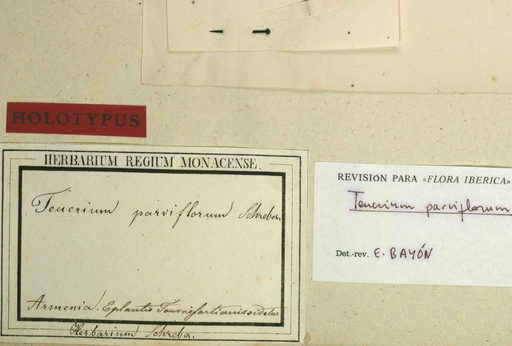 HOLOTYPUS
HERBARIUM REGIUM MONACENSE.
Teucrium parviflorum Schreber.
Armenia. E plantis Tournefortianis
Herbarium Schreb.
REVISION PARA «FLORA IBERICA»
Teucrium parviflorum
Det.-rev. E. BAYÓN